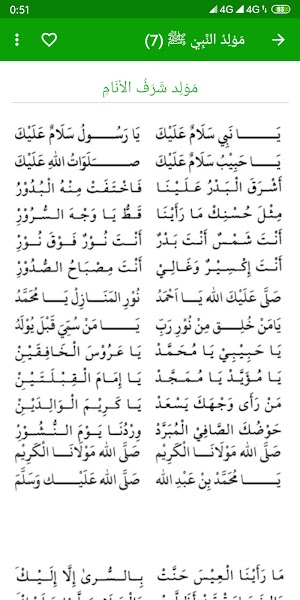 0:51 4G 4G
مَوْلِدُ النَّبِيْ ﷺ (7)
مَوْلِد شَرَفُ الأَنَامِ
يَـــا نَبِي سَلَامٌ عَلَيْكَ يَا رَسُـــول سَلَامٌ عَلَيْكَ
يَـــا حَبِيْبُ سَلَامٌ عَلَيْكَ صَـــلَوَاتُ اللهِ عَلَيْكَ
أَشْرَقَ الْبَدْرُ عَلَيْنَا فَاخْتَفَتْ مِنْهُ الْبُدُوْرُ
مِثْلَ حُسْنِكْ مَا رَأَيْنَا قَطُّ يَا وَجْهَ السُّرُوْرِ
أَنْتَ شَمْسٌ أَنْتَ بَدْرٌ أَنْتَ نُوْرٌ فَوْقَ نُوْرْ
أَنْتَ إِكْسِيْرٌ وَغَالِيْ أَنْتَ مِصْبَاحُ الصُّدُوْرْ
صَلَّى عَلَيْكَ الله يَا اَحْمَدُ نُوْرِ الْمَنَازِلْ يَـــا مُحَمَّدُ
يَامَنْ خُلِقْ مِنْ نُوْرِ رَبِّ يَـــا مَنْ سُمِّيَ قَبْلَ يُوْلَدُ
يَا حَبِيْبِيْ يَا مُحَمَّدْ يَا عَرُوْسَ الْخَافِقَيْنْ
يَا مُؤَيَّدْ يَا مُمَجَّدْ يَا إِمَامَ الْقِبْلَتَيْنْ
مَنْ رَأَى وَجْهَكَ يَسْعَدْ يَا كَرِيْمَ الْوَالِدَيْنْ
حَوْضُكَ الصَّافِي الْمُبَرَّدْ وِرْدُنَا يَوْمَ النُّشُوْرْ
صَلَّى الله مَوْلَانَا الْكَرِيْم صَلَّى الله مَوْلَانَا الْكَرِيْم
يَـــا مُحَمَّدْ بِنْ عَبْدِ الله صَلَّى الله عَلَيْـــك وَسَلَّمَ
مَا رَأَيْنَا الْعِيْسَ حَنَّتْ بِالسُّرىٰ إِلَّا إِلَيْكَ